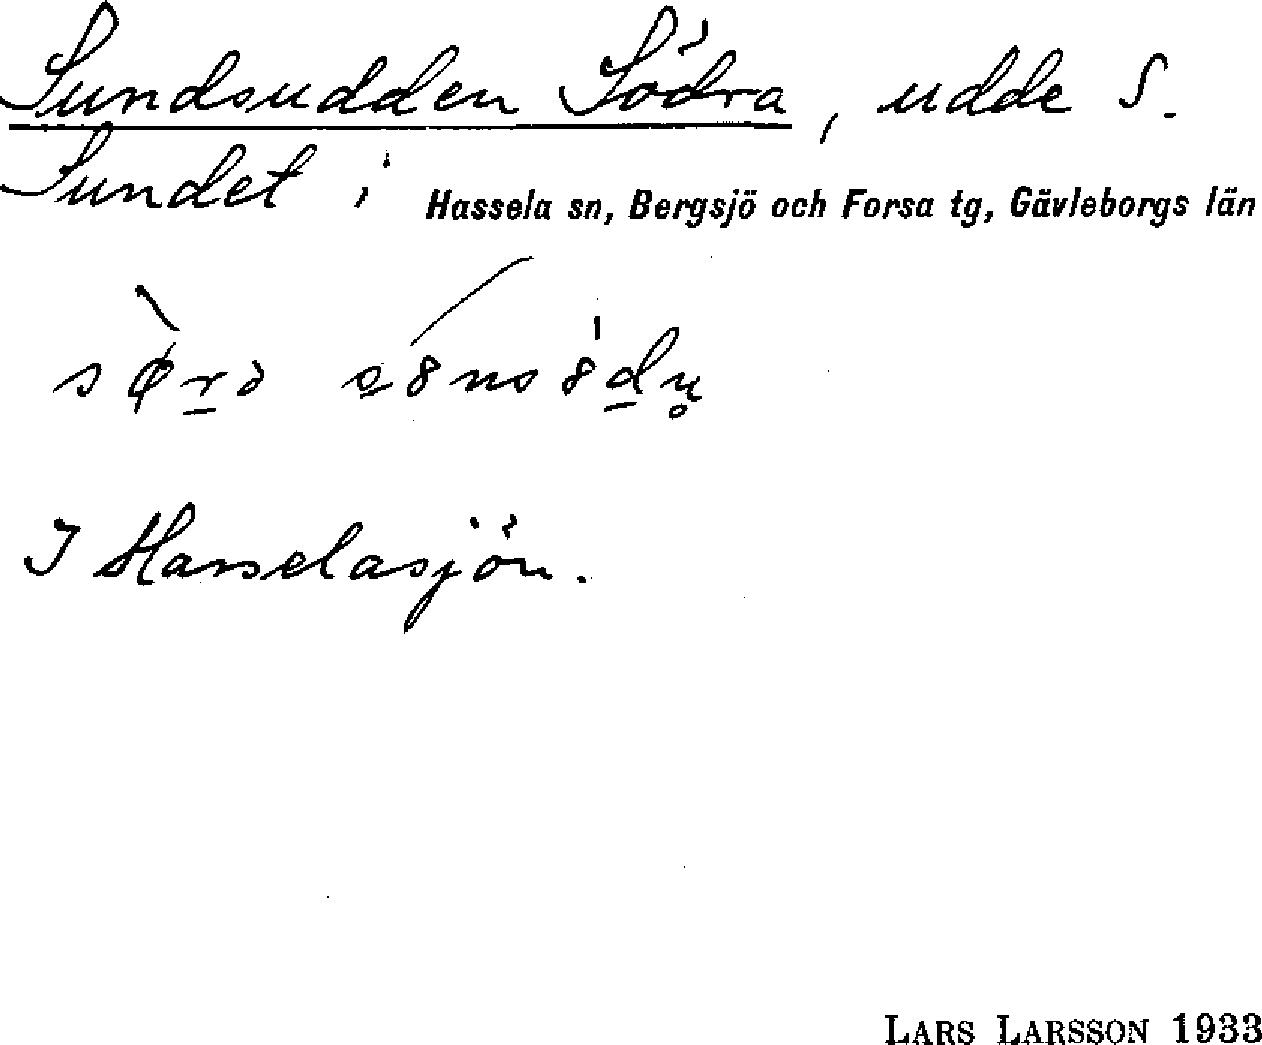 Sundsudden Södra, udde S.
Sundet i Hassela sn, Bergsjö och Forsa tg, Gävleborgs län
I Hasselasjön.
LARS LARSSON 1933